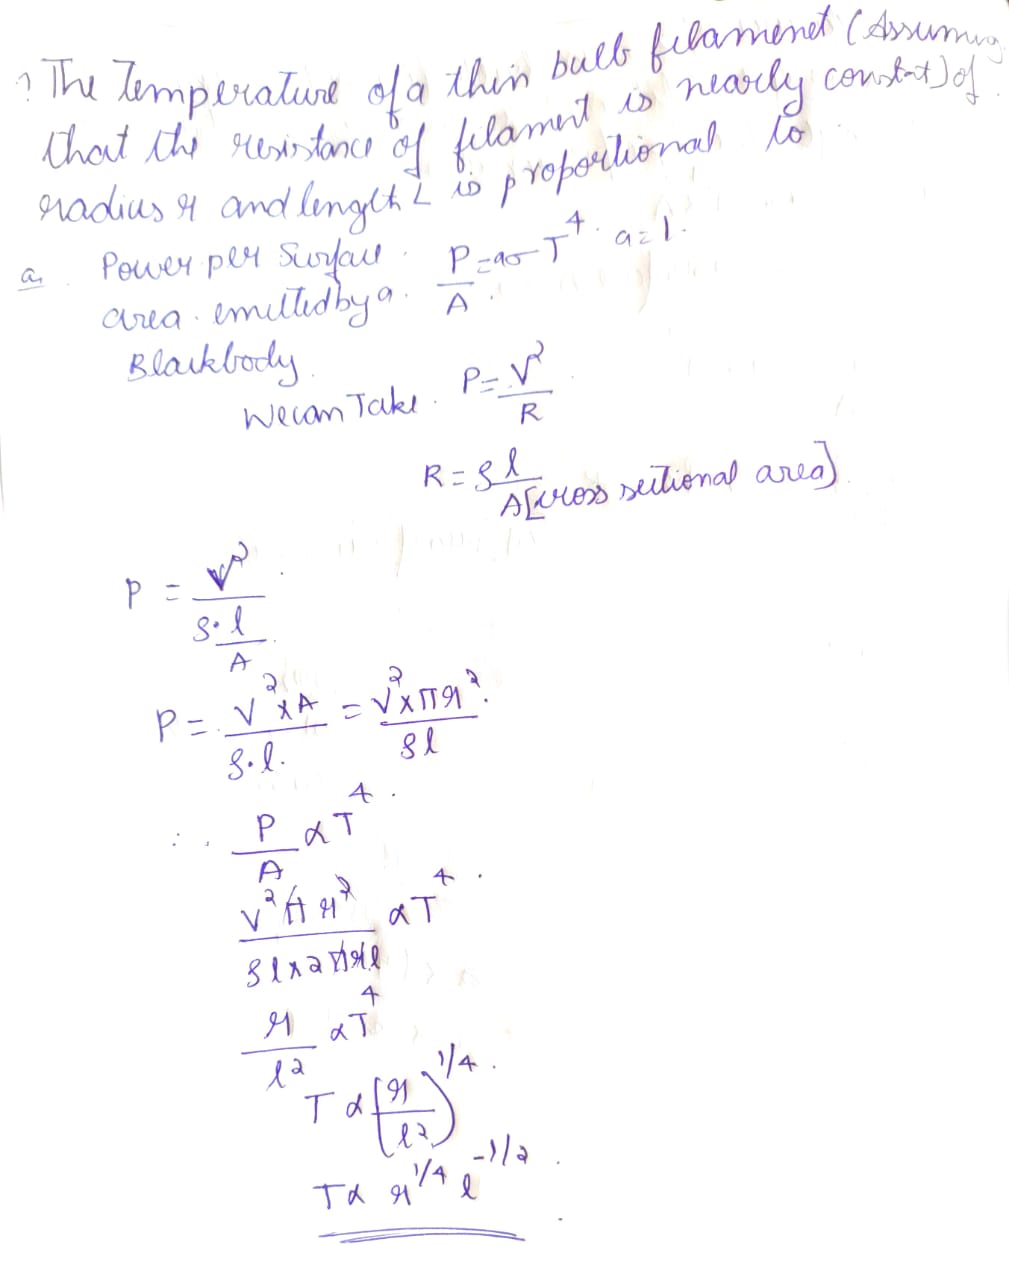 ? The Temperature of a thin bulb filamenet (Assuming
that the resistance of filament is nearly constat) of
radius r and length L is proportional to
a. Power per Surface P/A = aσT⁴ a=1.
area emitted by a
Blackbody.
We can Take. P = V²/R
R = ρ l/A [cross sectional area]
P = V²/(ρ·l/A)
P = V²×A/ρ·l. = V²×πr²/ρl
∴ P/A α T⁴.
V²πr²/ρl×2πrl α T⁴.
r/l² α T⁴
T α (r/l²)^1/4.
T α r^1/4 l^-1/2.